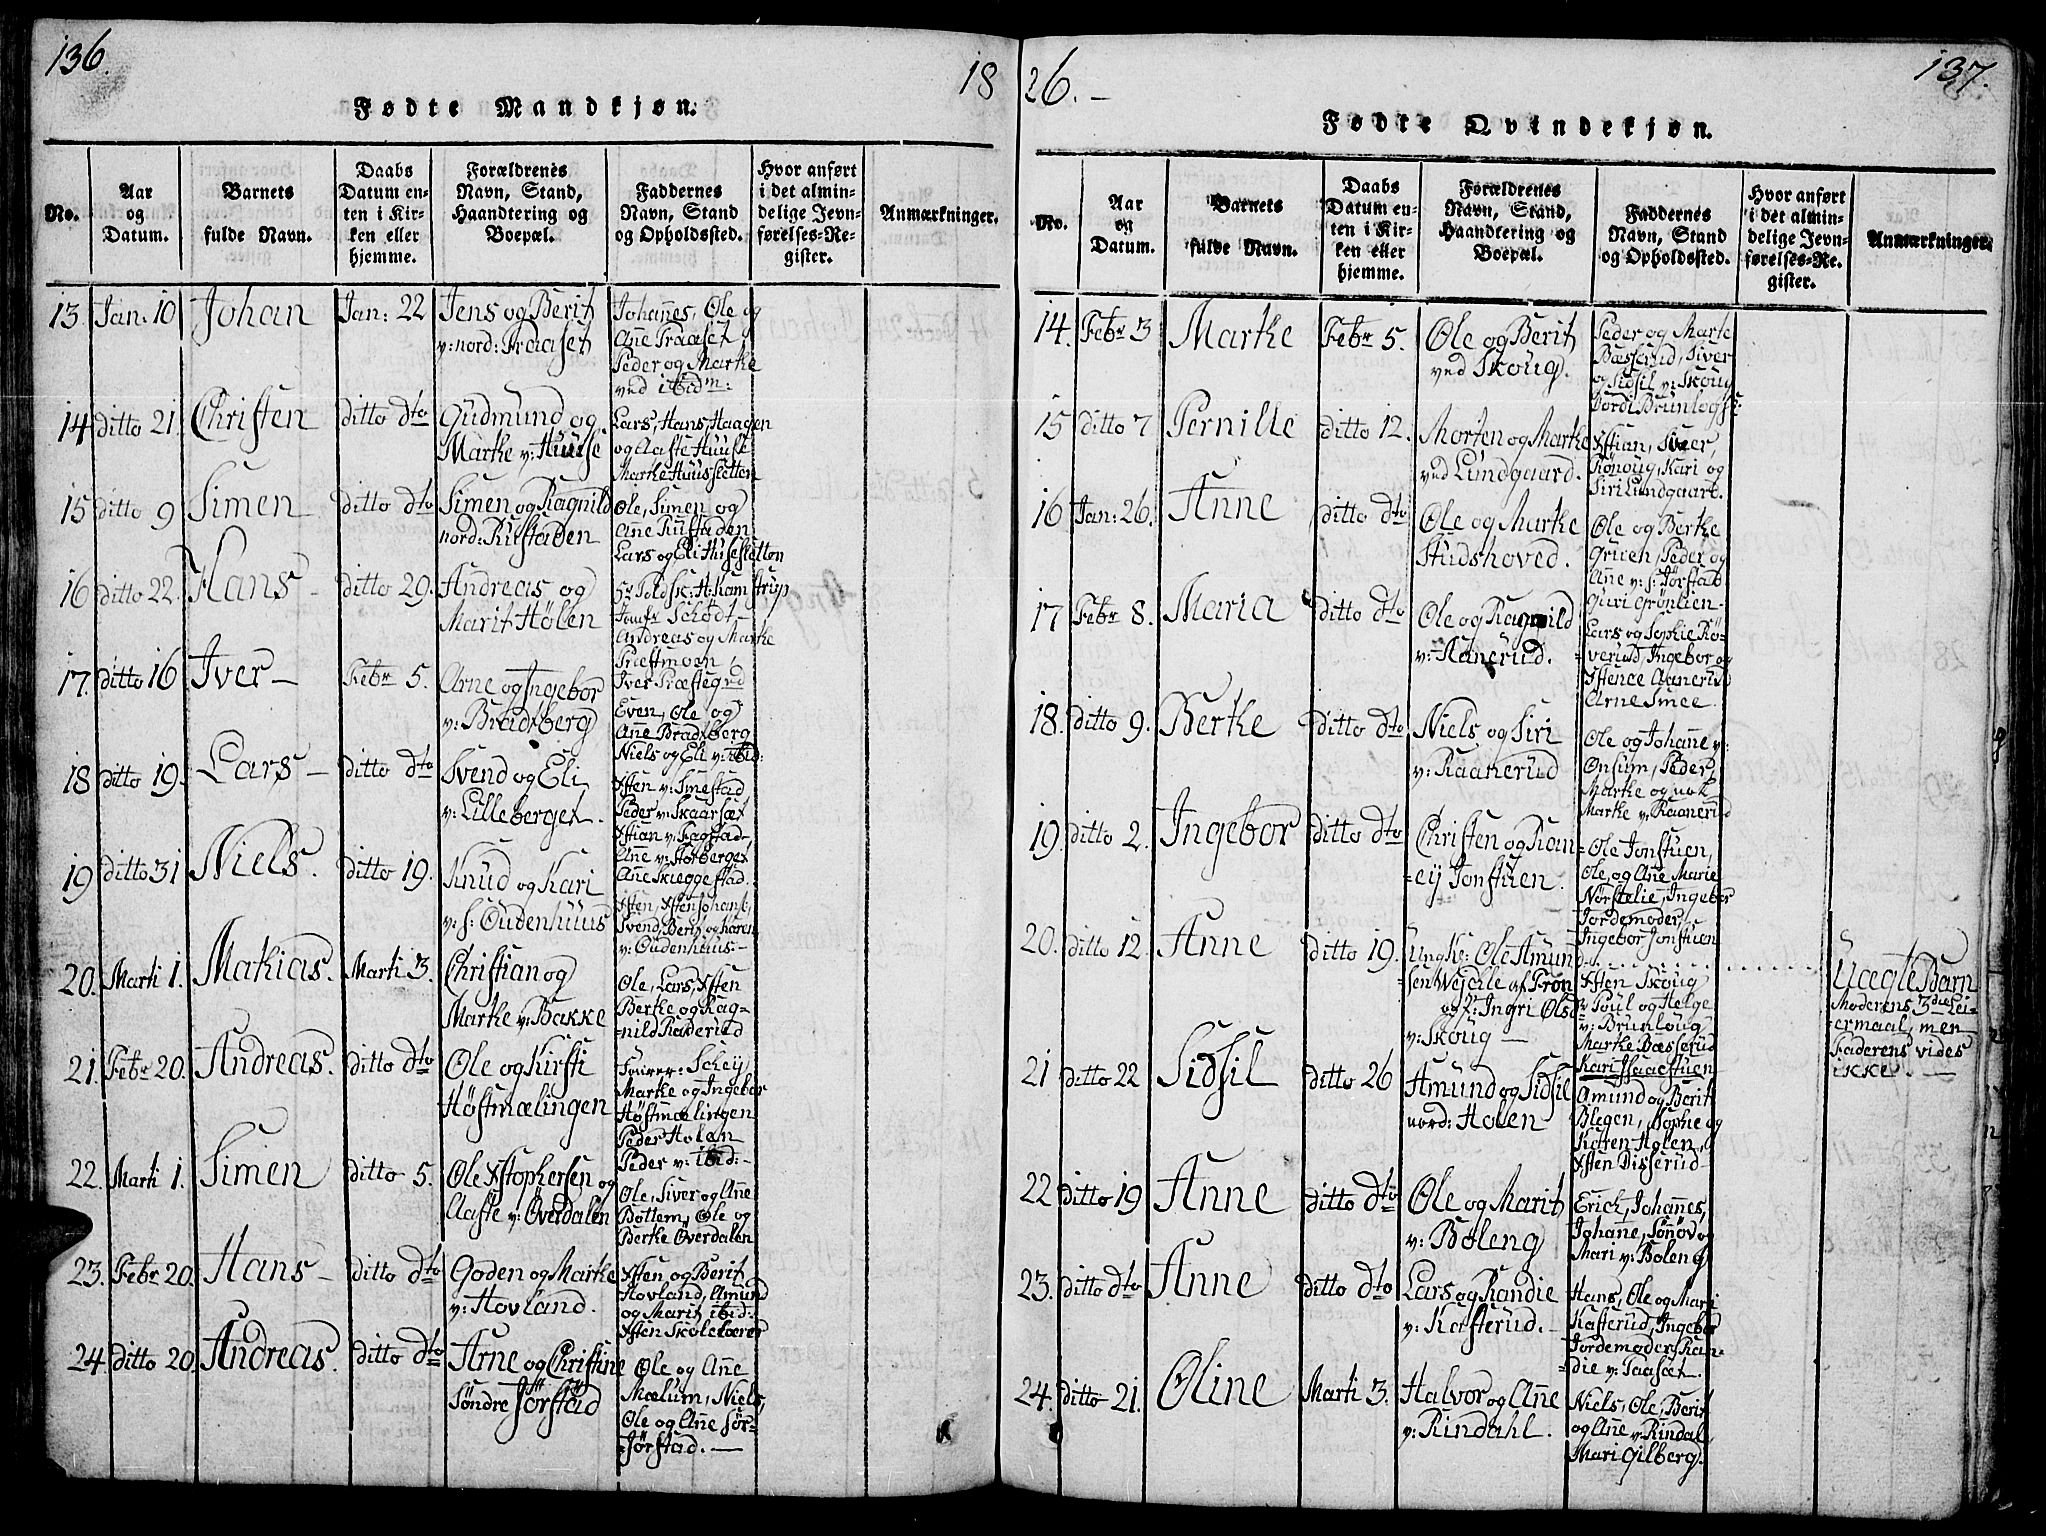 136.
18
Fødte Mandkjøn.
No.
Aar
og
Datum.
Barnets
fulde Navn.
Daabs
Datum en-
ten i Kir-
ken eller
hjemme.
Forældrenes
Navn, Stand,
Haandtering og
Boepæl.
Faddernes
Navn, Stand
og Opholdssted.
Hvor anført
i det almin-
delige Jevn-
førelses-Re-
gister.
Anmærkninger.
13. Jan: 10 Johan Jan: 22
Jens og Berit
v: nord: Traaset
Johañes, Ole og
Añe Traaset
Peder og Marthe
ved ibidm:
14 ditto 21. Christen ditto dto
Gudmund og
Marthe v: Huuse
Lars, Hans, Haagen
og Aaste Huuse
Marthe Huussletten
15 ditto 9 Simen ditto dto
Simen og Ragnild
nord: Rustaden
Ole, Simen og
Añe Rustaden
Lars og Eli Husesletten
16 ditto 22. Hans – ditto 29.
Andreas og
Marit Hølen
Sr Toldsk: H: Kamstrup
Jomfr Schødt
Andreas og Marthe
Præstmoen
17. ditto 16 Iver – Febr 5.
Arne og Ingebor
v: Bradtberg
Iver Præstegrd
Even, Ole og
Añe Bradtberg
Niels og Eli v: ibid:
18 ditto 19. Lars – ditto dto
Svend og Eli
v: Lilleberget.
Xsten v: Smestad
Peder v: Skaarsæt
Xstian v: Fagstad
Añe v: Storberget
Añe Skieggestad.
19 ditto 31 Niels. ditto 19.
Knud og Kari
v: s: Oudenhuus
Xsten, Xsten Johans:
Svend, Berit og Karen
v: Oudenhuus –
20. Marti 1. Mathias. Marti 3.
Christian og
Marthe v: Bakke
Ole, Lars, Xsten
Berthe og Rag-
=nild Raderud
21. Febr 20. Andreas. ditto dto
Ole og Kirsti
Høstmælingen
Fourer: Scheÿ
Marthe og Ingebor
Høstmælingen
Peder Holen
Peder v: ibid: –
22. Marti 1. Simen ditto 5.
Ole Xstophersen og
Aaste v: Overdalen
Ole, Siver og Añe
Bottem, Ole og
Berthe Overdalen
23. Febr 20. Hans – ditto dto
Goden og Marthe
v: Hovland.
Xsten og Berit
Hovland, Amund
og Marit ibid:
Xsten Skolelærer
24. ditto 20. Andreas. ditto dto
Arne og Christine
Søndre Jørstad
Ole og Añe
Mælum, Niels,
Ole og Añe Sør-
=Jørstad. –
26. –
137.
Fødte Qvindekjøn.
No.
Aar
og
Datum.
Barnets
fulde Navn.
Daabs
Datum en-
ten i Kir-
ken eller
hjemme.
Forældrenes
Navn, Stand,
Haandtering og
Boepæl.
Faddernes
Navn, Stand
og Opholdssted.
Hvor anført
i det almin-
delige Jevn-
førelses-Re-
gister.
Anmærkninger.
14. Febr 3 Marthe Febr 5.
Ole og Berit
ved Skoug.
Peder og Marte
Bæsserud, Siver
og Sidsil v: Skoug
Tordi Brunlogs:
15 ditto 7 Pernille ditto 12.
Morten og Marthe
ved Lundgaard.
Xstian, Siver,
Rønoug, Kari og
Siri Lundgaard.
16 Jan: 26. Anne ditto dto
Ole og Marthe
Studshoved.
Ole og Berthe
Gruen, Peder og
Añe v: s: Jørstad
Guri Grønlien –
17 Febr 8. Maria ditto dto
Ole og Ragnild
v: Aanerud.
Lars og Sophie Rø-
=verud, Ingebor og
Xstence Aanerud
Arne Smee.
18. ditto 9. Berthe ditto dto
Niels og Siri
v: Raanerud
Ole og Johañe v:
Onsum, Peder,
Marthe og nok
Marthe v: Raanerud
19. ditto 2. Ingebor ditto dto
Christen og Ran-
=eij Jonstuen.
Ole Jonstuen,
Ole, og Añe Marie
Nørstelie, Ingebor
Jordemoder,
Ingebor Jonstuen
20. ditto 12. Anne ditto 19.
Ungk: Ole Amun
=sen Weichle af Fron
og P: Ingri Olsd
v: Skoug –
Xsten Skoug
Poul og Helge
v: Brunloug
Marthe Bæsserud
Kari Isaacstuen
Uægte Barn
Moderens 3die Lei-
=ermaal, men
Faderens vides
ikke. –
21 ditto 22 Sidsil ditto 26
Amund og Sidsil
nord: Holen
Amund og Berit
Blegen, Sophie og
Karen Holen,
Xsten Disserud
22 ditto 19 Anne ditto dto
Ole og Marit
v: Boleng
Erich, Johañes,
Johañe, Søñøv og
Mari v: Boleng
23. ditto dto Anne ditto dto
Lars og Randie
v: Kasterud.
Hans, Ole og Mari
Kasterud, Ingebor
Jordemoder, Ran-
=die v: Taaset.
24. ditto 21. Oline Marti 3.
Halvor og Añe
v: Rindahl.
Niels, Ole, Berit
og Añe v: Rindal
Mari Gilberg.